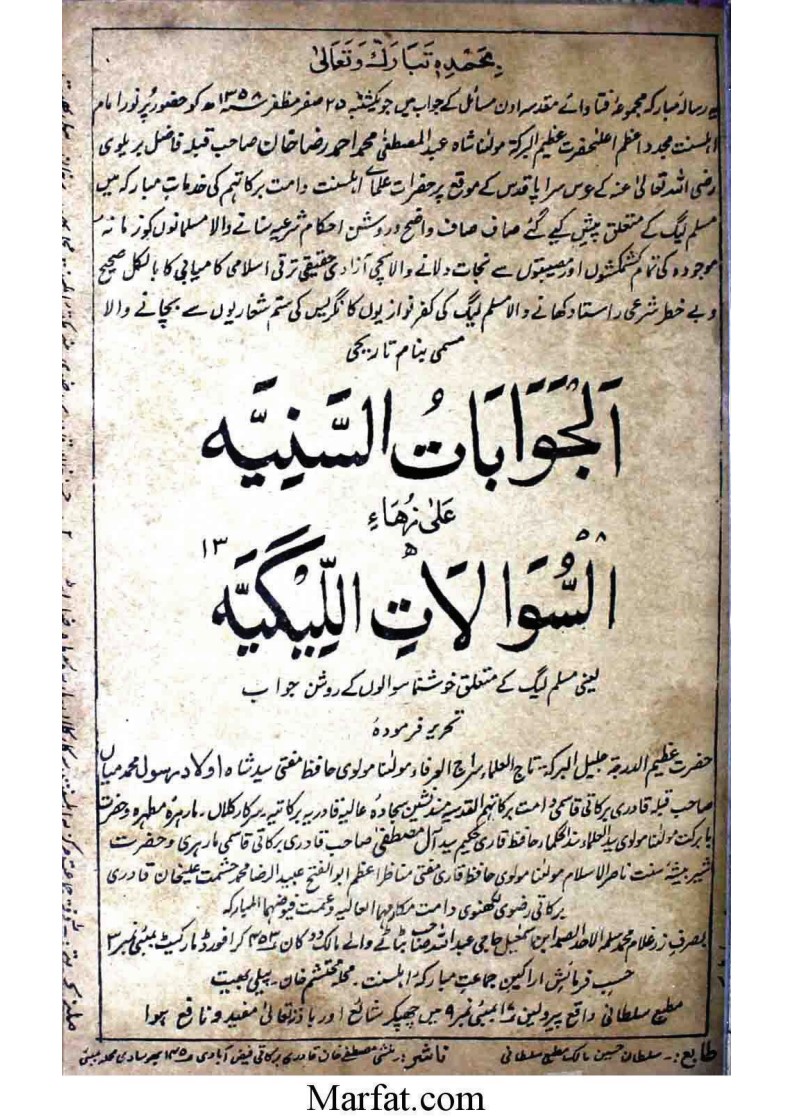 بحمدہٖ تبارک وتعالیٰ
رسالۂ مبارکہ مجموعۂ فتاوائے مقدسہ اون مسائل کے جواب میں جو یکشنبہ ۲۵ صفر مظفر ۱۳۵۸ھ کو حضور پُر نور امام
اہلسنت مجدد اعظم اعلیٰحضرت عظیم البرکۃ مولنٰا شاہ عبدالمصطفیٰ محمد احمد رضا خان صاحب قبلہ فاضل بریلوی
رضی اللہ تعالیٰ عنہ کے عرس سراپا قدس کے موقع پر حضرات علمائے اہلسنت دامت برکاتہم کی خدمات مبارکہ میں
مسلم لیگ کے متعلق پیش کیے گئے صاف صاف واضح و روشن احکام شرعیہ سنانے والا مسلمانوں کو زمانۂ
موجودہ کی تمام کشمکشوں اور مصیبتوں سے نجات دلانے والا سچی آزادی حقیقی ترقی اسلامی کامیابی کا بالکل صحیح
و بے خطر شرعی راستا دکھانے والا مسلم لیگ کی کفر نوازیوں کانگریس کی ستم شعاریوں سے بچانے والا
مسمی بنام تاریخی
اَلْجَوَابَاتُ السَّنِیَّہ
عَلیٰ زُہَاءِ
السُّوَالَاتِ اللِّیْگِیَّہ
۱۳ ھ ۵۸
یعنی مسلم لیگ کے متعلق خوشنما سوالوں کے روشن جواب
تحریر فرمودہ
حضرت عظیم الدرجۃ جلیل البرکۃ تاج العلماء سراج العرفاء مولنٰا مولوی حافظ مفتی سید شاہ اولاد رسول محمد میاں
صاحب قبلہ قادری برکاتی قاسمی دامت برکاتہم القدسیہ مسند نشین سجادہ عالیہ قادریہ برکاتیہ سرکار کلاں۔ مارہرہ مطہرہ و حضرت
بابرکت مولنٰا مولوی سید العلماء سند الحکماء حافظ قاری حکیم سید آل مصطفیٰ صاحب قادری برکاتی قاسمی مارہری و حضرت
شیر بیشۂ سنت ناصر الاسلام مولنٰا مولوی حافظ قاری مفتی مناظر اعظم ابو الفتح عبید الرضا محمد حشمت علیخان قادری
برکاتی رضوی لکھنوی دامت مکارمہما العالیہ وعمت فیوضہما المبارکہ
بصرفِ زر غلام محمد سلمہ الاحد الصمد ابن اسمٰعیل حاجی عبداللہ صاحب بٹاٹے والے مالک دوکان ۳۵۳ کرافورڈ مارکیٹ بمبئی نمبر ۳
حسب فرمائش اراکین جماعت مبارکۂ اہلسنت۔ محلہ محتشم خان۔ پیلی بھیت
مطبع سلطانی واقع پرولین بمبئی نمبر ۹ میں چھپکر شائع اور باذنہ تعالیٰ مفید و نافع ہوا
طابع:۔ سلطان حسین مالک مطبع سلطانی ناشر:۔ منشی مصطفےٰ خان قادری برکاتی فیض آبادی محلہ بمبئی
Marfat.com